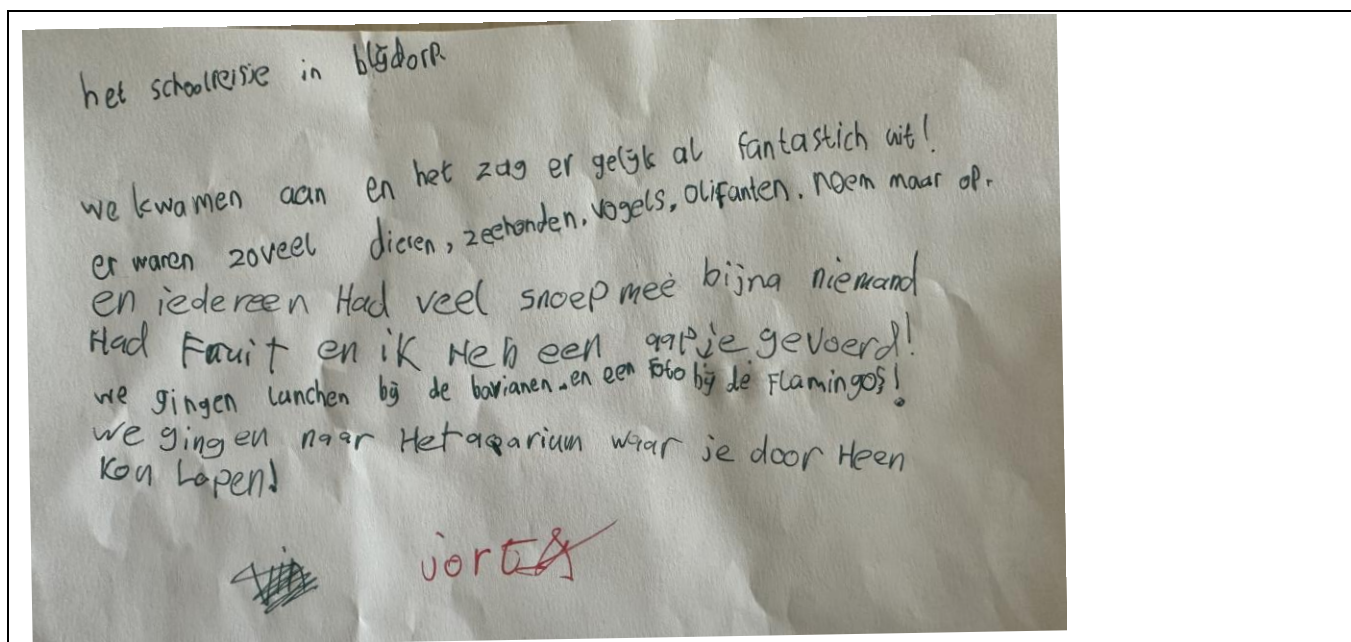 het schoolreisje in blijdorp.
we kwamen aan en het zag er gelijk al fantastich uit!
er waren zoveel dieren, zeehonden, vogels, olifanten, noem maar op.
en iedereen Had veel snoep mee bijna niemand
Had Fruit en ik Heb een aapje gevoerd!
we gingen lunchen bij de bavianen. en een foto bij de Flamingos!
we gingen naar Het aqarium waar je door Heen
kon Lopen!
jort